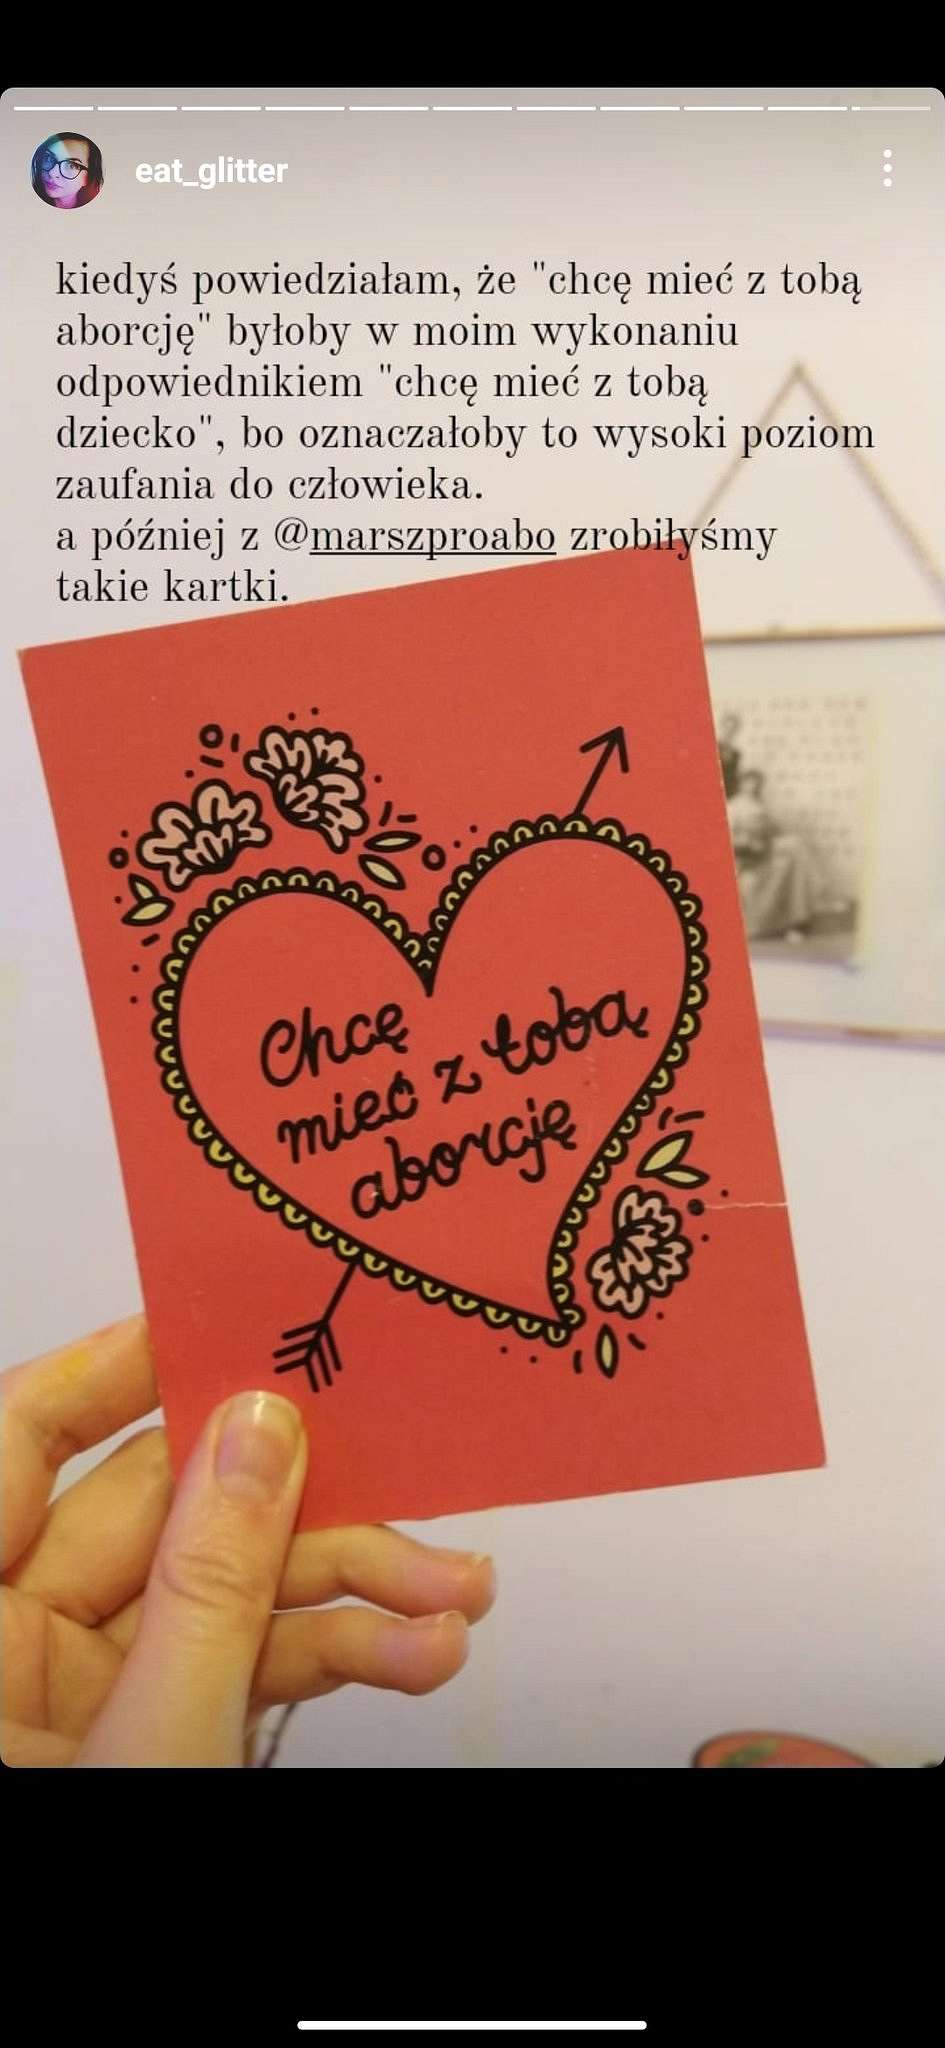 eat_glitter
kiedyś powiedziałam, że "chcę mieć z tobą
aborcję" byłoby w moim wykonaniu
odpowiednikiem "chcę mieć z tobą
dziecko", bo oznaczałoby to wysoki poziom
zaufania do człowieka.
a później z @marszproabo zrobiłyśmy
takie kartki.
Chcę
mieć z tobą
aborcję